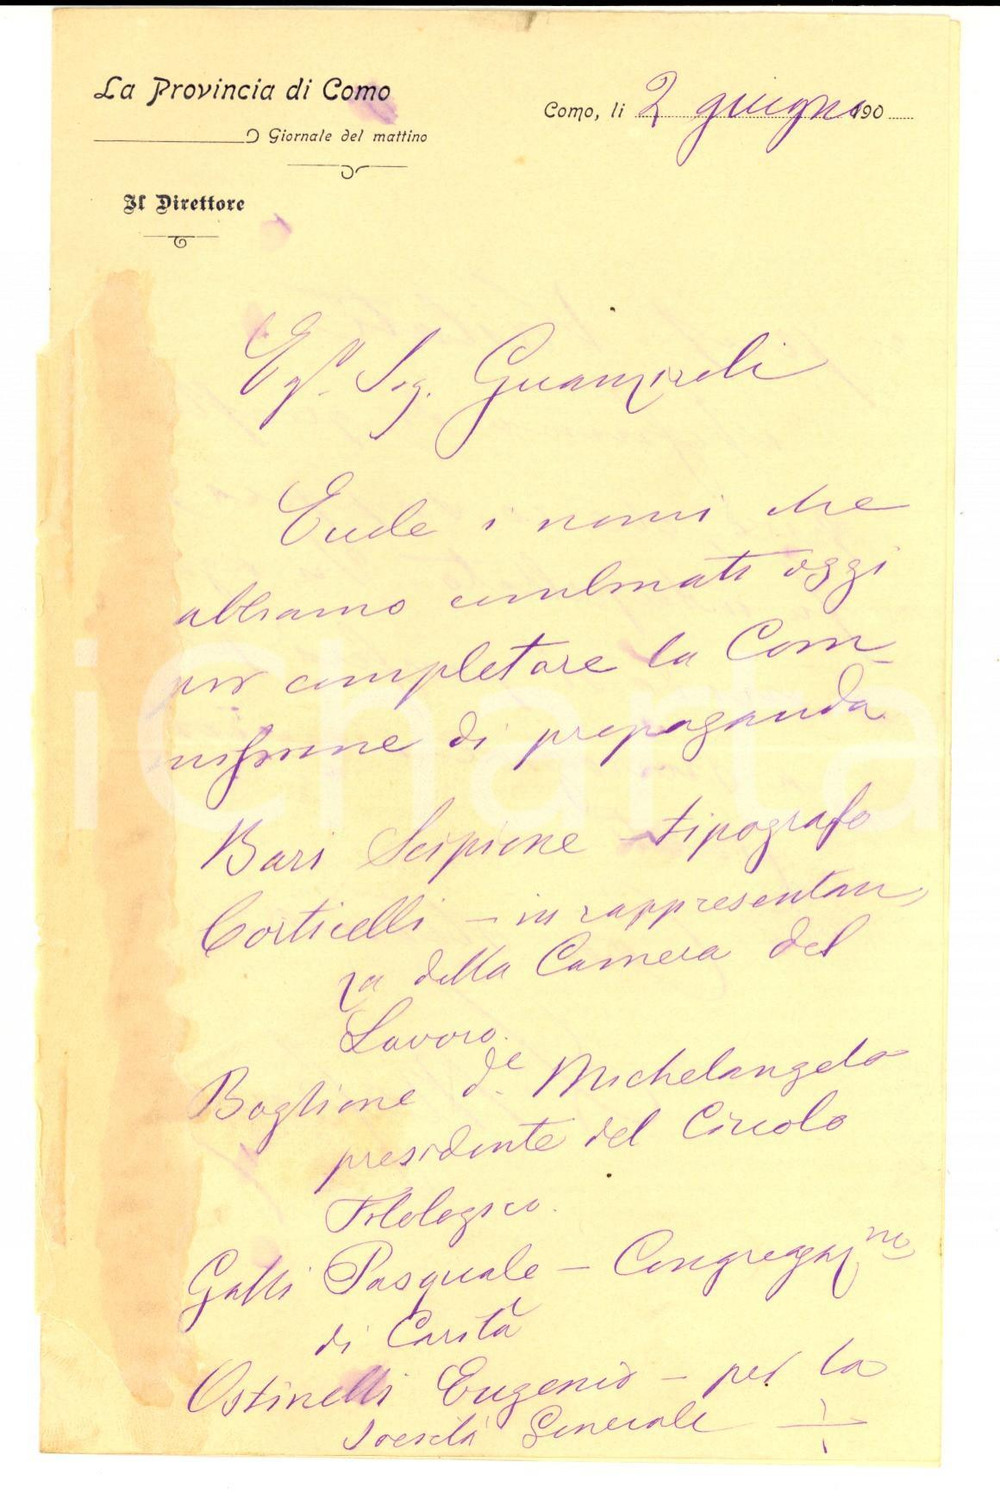 La Provincia di Como
Giornale del mattino
Il Direttore
Como, li 2 giugno 190
Eg. Sig. Guanziroli
Eccole i nomi che
abbiamo combinati oggi
per completare la Com-
missione di propaganda
Bari Scipione - tipografo
Corticelli - in rappresentan
za della Camera del
Lavoro.
Baglione de Michelangelo
presidente del Circolo
Filologico.
Gatti Pasquale - Congregazne
di Carità
Ostinelli Eugenio - per la
Società Generale
iCharta